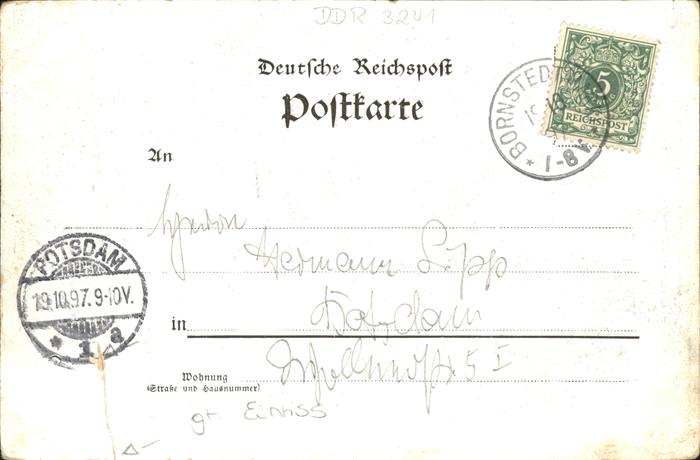 DDR 3241
Deutsche Reichspost
Postkarte
5
REICHSPOST
BORNSTEDT
1-8V.
An
Herrn
Hermann Lipp
POTSDAM
19.10.97. 9-10V.
* 1 a
in Potsdam
5 I
Wohnung
(Straße und Hausnummer)
gr. Einriss